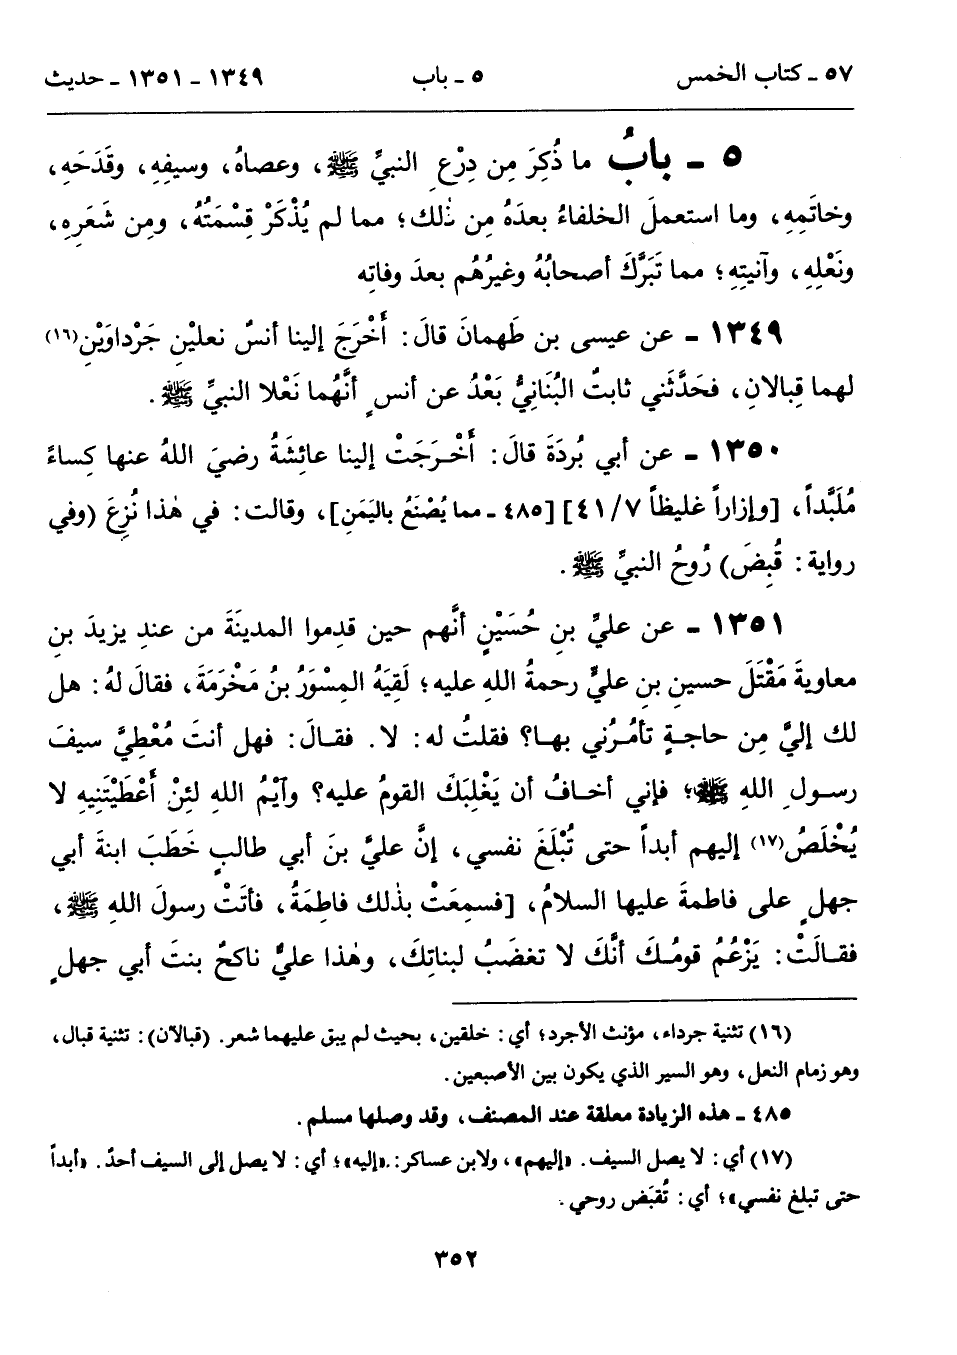 ٥٧ ـ كتاب الخمس ٥ ـ باب ١٣٤٩ ـ ١٣٥١ ـ حديث
٥ ـ بابُ ما ذُكِرَ مِن دِرْعِ النبيِّ ﷺ، وعصاهُ، وسيفِهِ، وقَدَحَهِ،
وخاتَمِهِ، وما استعملَ الخلفاءُ بعدَهُ مِن ذٰلك؛ مما لم يُذْكَرْ قِسْمَتُهُ، ومِن شَعَرِهِ،
ونَعْلِهِ، وآنيتِهِ؛ مما تَبَرَّكَ أصحابُهُ وغيرُهُم بعدَ وفاتِه
١٣٤٩ ـ عن عيسى بن طَهمانَ قالَ: أَخْرَجَ إلينا أنسٌ نعليْنِ جَرْداوَيْنِ(١٦)
لهما قِبالانِ، فحَدَّثَني ثابتٌ البُنَانِيُّ بَعْدُ عن أنسٍ أنَّهُما نَعْلا النبيِّ ﷺ.
١٣٥٠ ـ عن أبي بُردَةَ قالَ: أَخْرَجَتْ إلينا عائِشَةُ رضيَ اللهُ عنها كِساءً
مُلَبَّداً، [وإزاراً غليظاً ٤١/٧] [٤٨٥ ـ مما يُصْنَعُ باليَمَنِ]، وقالت: في هٰذا نُزِعَ (وفي
رواية: قُبِضَ) رُوحُ النبيِّ ﷺ.
١٣٥١ ـ عن عليِّ بنِ حُسَيْنٍ أنَّهم حين قدِموا المدينَةَ من عندِ يزيدَ بنِ
معاويةَ مَقْتَلَ حسينِ بنِ عليٍّ رحمةُ اللهِ عليه؛ لَقِيَهُ المِسْوَرُ بنُ مَخْرَمَةَ، فقالَ لهُ: هل
لك إليَّ مِن حاجةٍ تأمُرُني بها؟ فقلتُ له: لا. فقالَ: فهل أنتَ مُعْطِيَّ سيفَ
رسولِ اللهِ ﷺ؛ فإني أخافُ أن يَغْلِبَكَ القومُ عليه؟ وآيْمُ اللهِ لئِنْ أَعْطَيْتَنِيهِ لا
يُخْلَصُ(١٧) إليهم أبداً حتى تُبْلَغَ نفسي، إنَّ عليَّ بنَ أبي طالبٍ خَطَبَ ابنةَ أبي
جهلٍ على فاطمةَ عليها السلامُ، [فسمِعَتْ بذٰلك فاطِمَةُ، فأتَتْ رسولَ اللهِ ﷺ،
فقالَتْ: يَزْعُمُ قومُكَ أنَّكَ لا تغضَبُ لبناتِكَ، وهٰذا عليٌّ ناكحٌ بنتَ أبي جهلٍ
(١٦) تثنية جرداء، مؤنث الأجرد؛ أي: خلقين، بحيث لم يبق عليهما شعر. (قبالان): تثنية قبال،
وهو زمام النعل، وهو السير الذي يكون بين الأصبعين.
٤٨٥ ـ هذه الزيادة معلقة عند المصنف، وقد وصلها مسلم.
(١٧) أي: لا يصل السيف. «إليهم»، ولابن عساكر: «إليه»؛ أي: لا يصل إلى السيف أحدٌ. «أبداً
حتى تبلغ نفسي»؛ أي: تُقبَض روحي.
٣٥٢